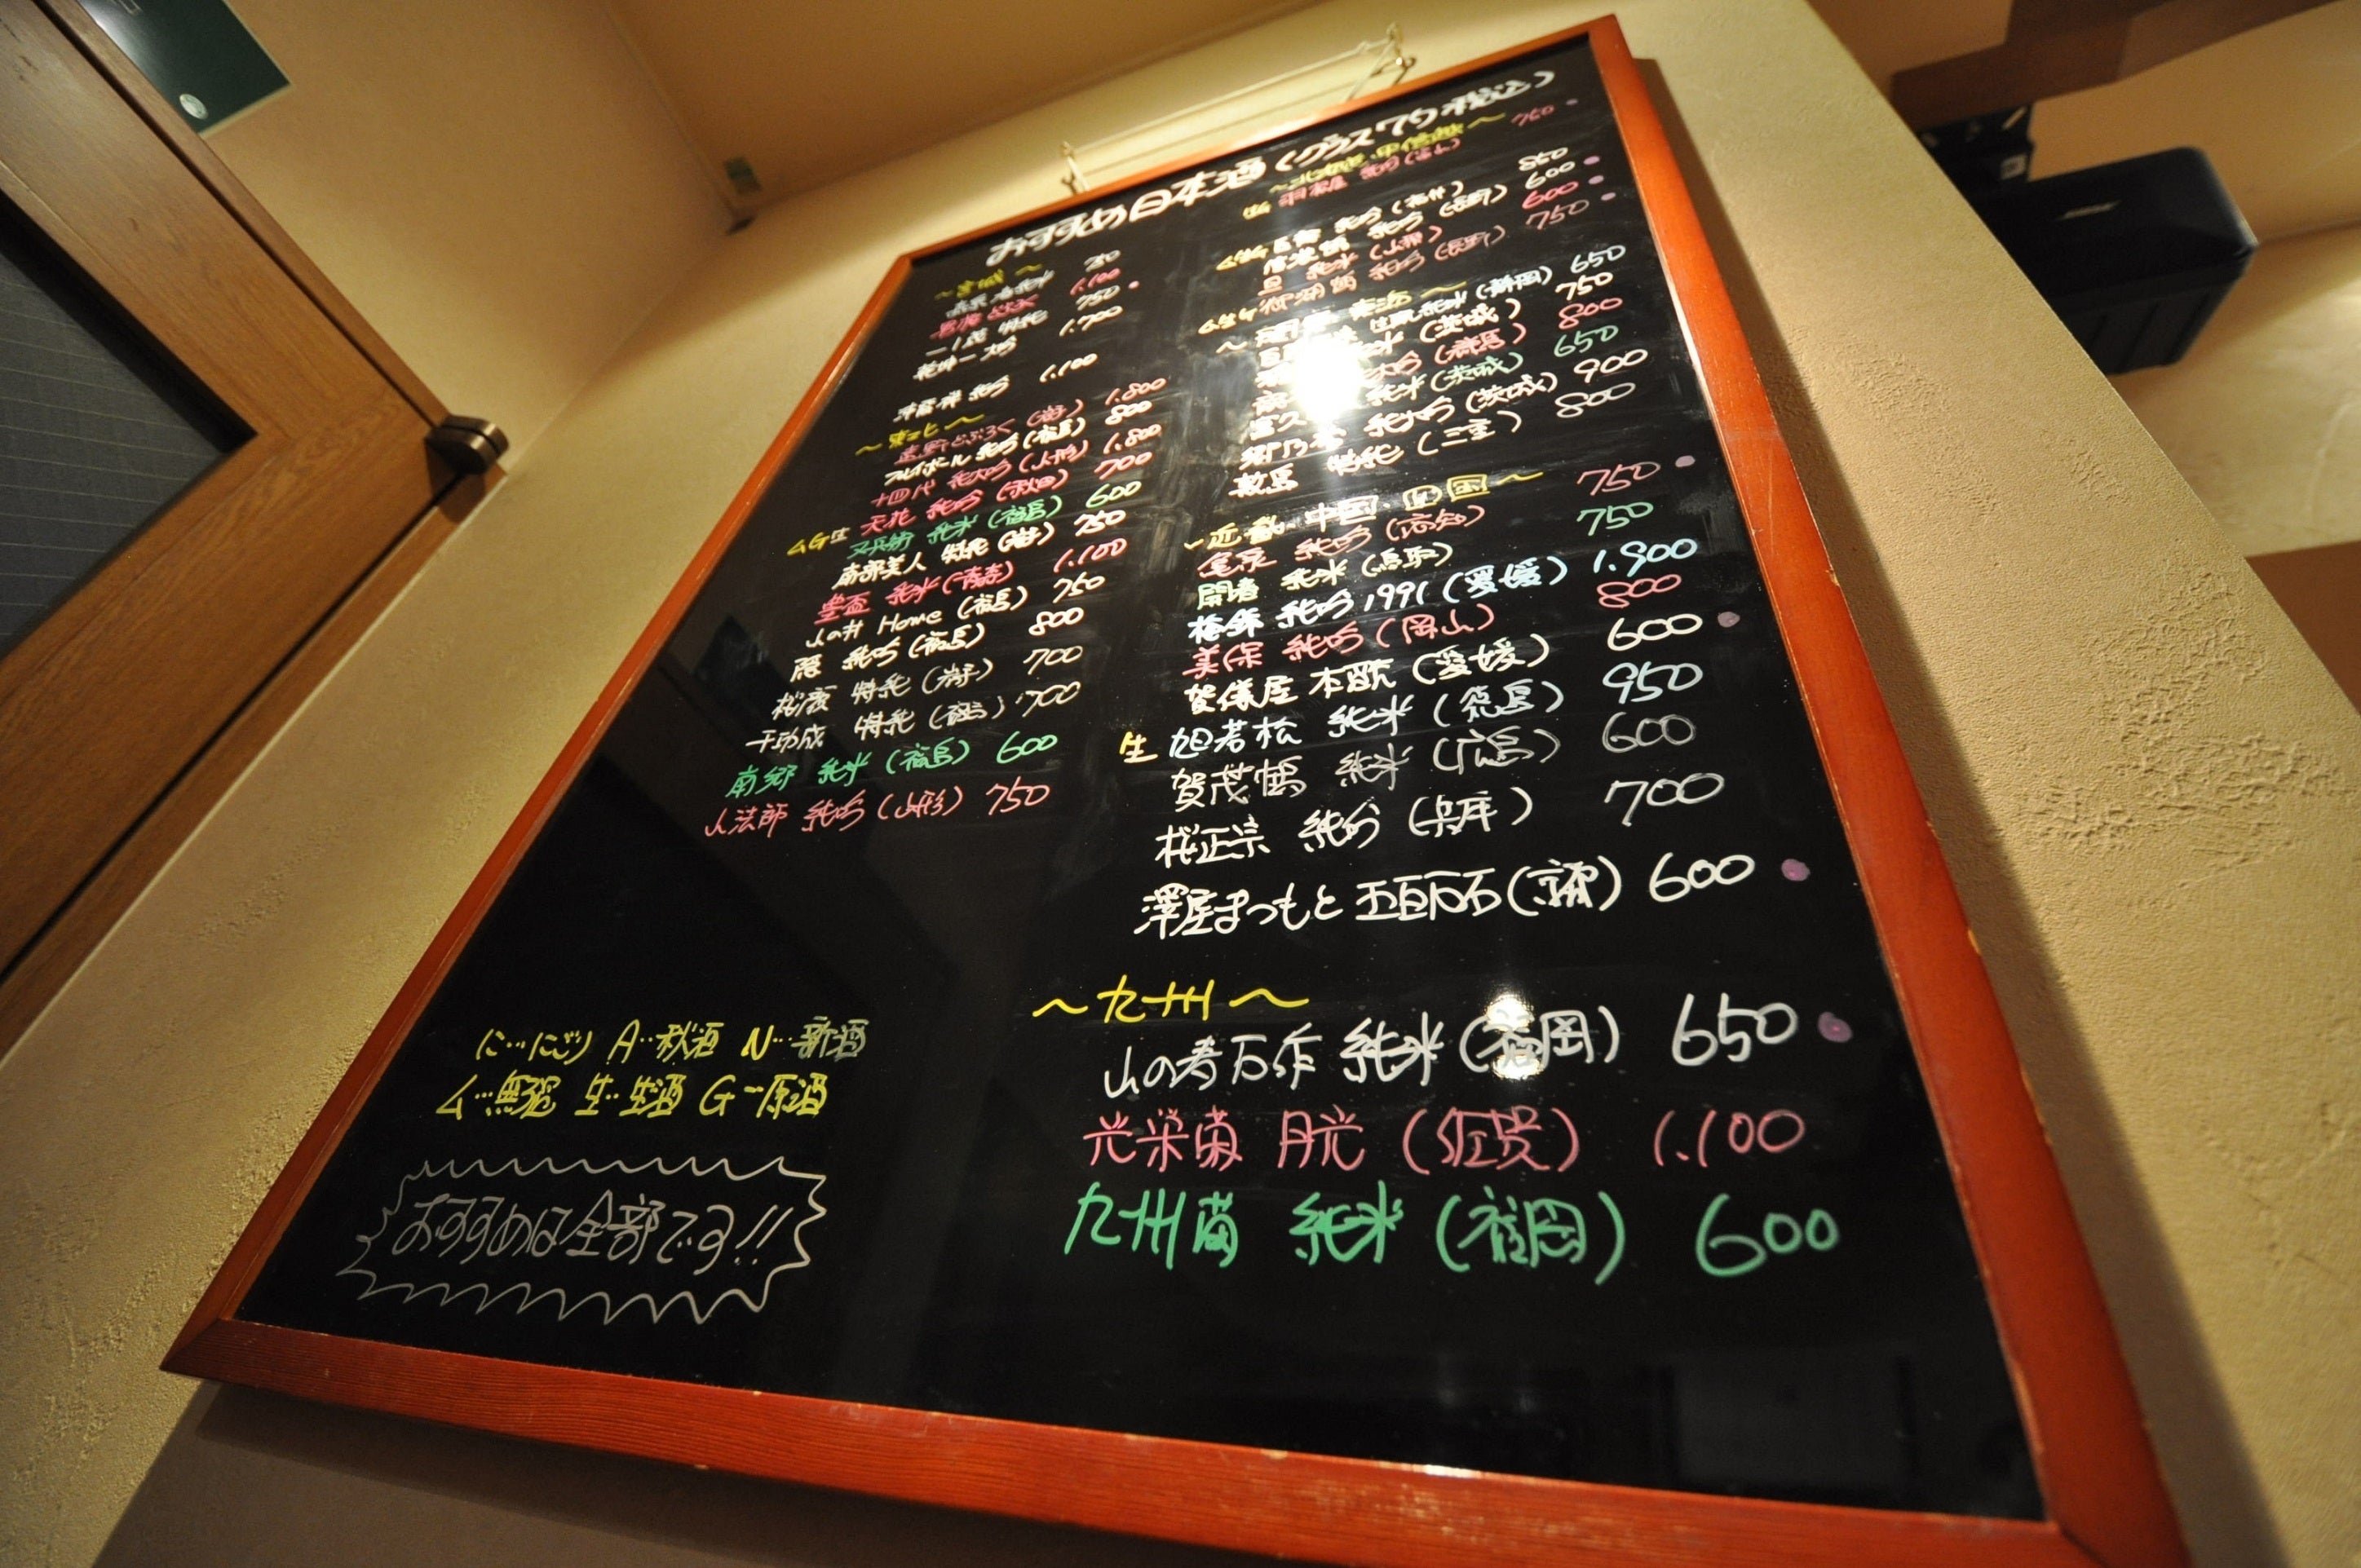 おすすめ日本酒(グラス 税込)
~宮城~
750
1.100
一ノ蔵 特純 750
乾坤一 大吟 1.700
純吟 1.100
~東北~
遠野どぶろく(岩手) 1.800
純吟(福島) 800
十四代 純大吟(山形) 1.800
ムG生 天花 純吟(秋田) 700
又兵衛 純米(福島) 600
南部美人 特純(岩手) 750
豊盃 純米(青森) 1.100
山の井 Home(福島) 750
純吟(福島) 800
桜顔 特純(岩手) 700
千功成 特純(福島) 700
南郷 純米(福島) 600
山法師 純吟(山形) 750
に…にごり A…秋酒 N…新酒
ム…無濾 生…生酒 G…原酒
おすすめは全部です!!
~北陸・甲信越~
羽根屋 純吟(富山) 750
純吟(福井) 850
純吟(長野) 600
純米(山梨) 600
ム生G 御湖鶴 純吟(長野) 750
純米(静岡) 650
(茨城) 750
大吟(群馬) 800
純米(茨城) 650
郷乃譽 純大吟(茨城) 900
特純(三重) 800
~近畿 中国 四国~
純吟(高知) 750
純米(鳥取) 750
梅錦 純吟1991(愛媛) 1.900
美保 純吟(岡山) 800
賀儀屋 本醸(愛媛) 600
生 旭若松 純米(徳島) 950
賀茂鶴 純米(広島) 600
桜正宗 純吟(兵庫) 700
澤屋まつもと 五百万石(京都) 600
~九州~
山の寿万作 純米(福岡) 650
光栄菊 月光(佐賀) 1.100
九州菊 純米(福岡) 600